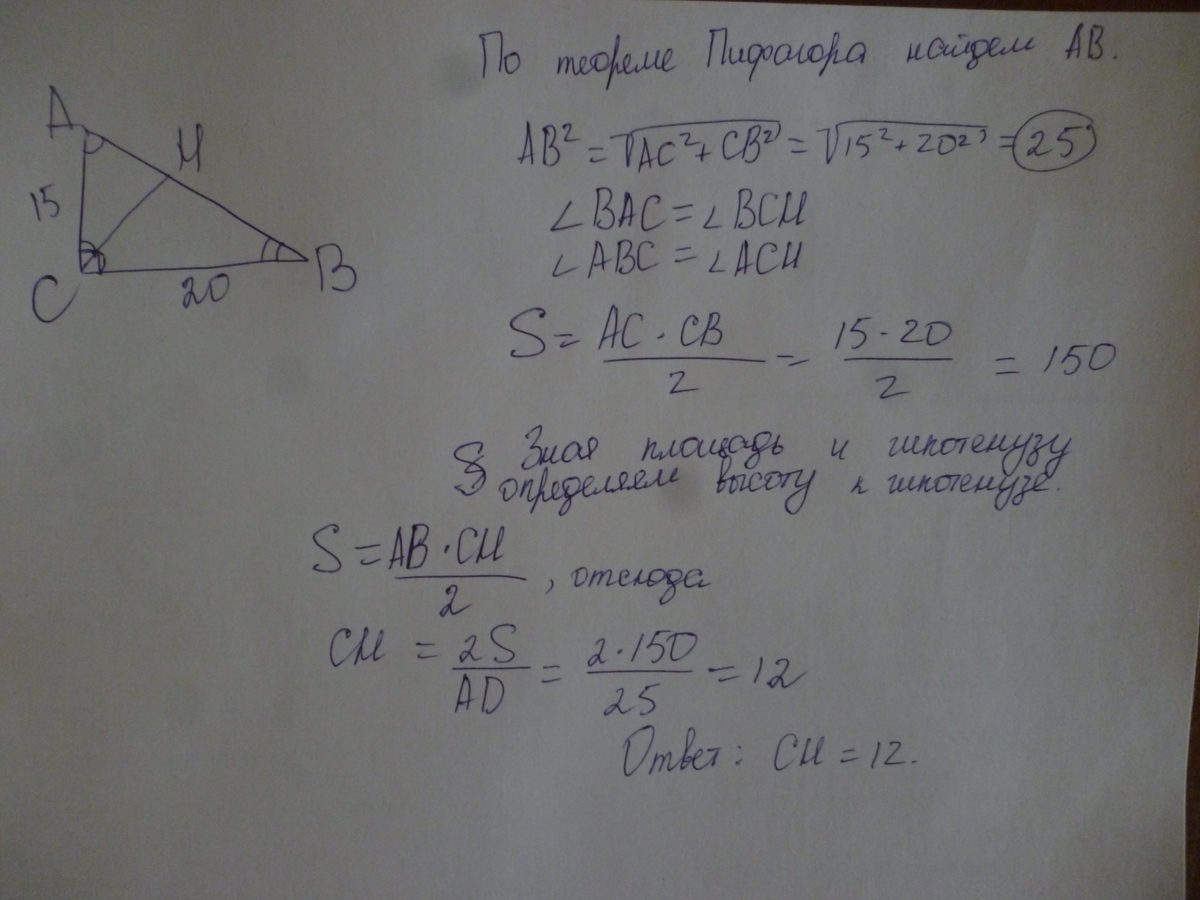 По теореме Пифагора найдем AB.
A
H
15
C
20
B
AB² = √AC² + CB² = √15² + 20² = 25
∠BAC = ∠BCH
∠ABC = ∠ACH
S = AC · CB / 2 = 15 · 20 / 2 = 150
Зная площадь и гипотенузу
определяем высоту к гипотенузе.
S = AB · CH / 2, отсюда
CH = 2S / AD = 2 · 150 / 25 = 12
Ответ: CH = 12.